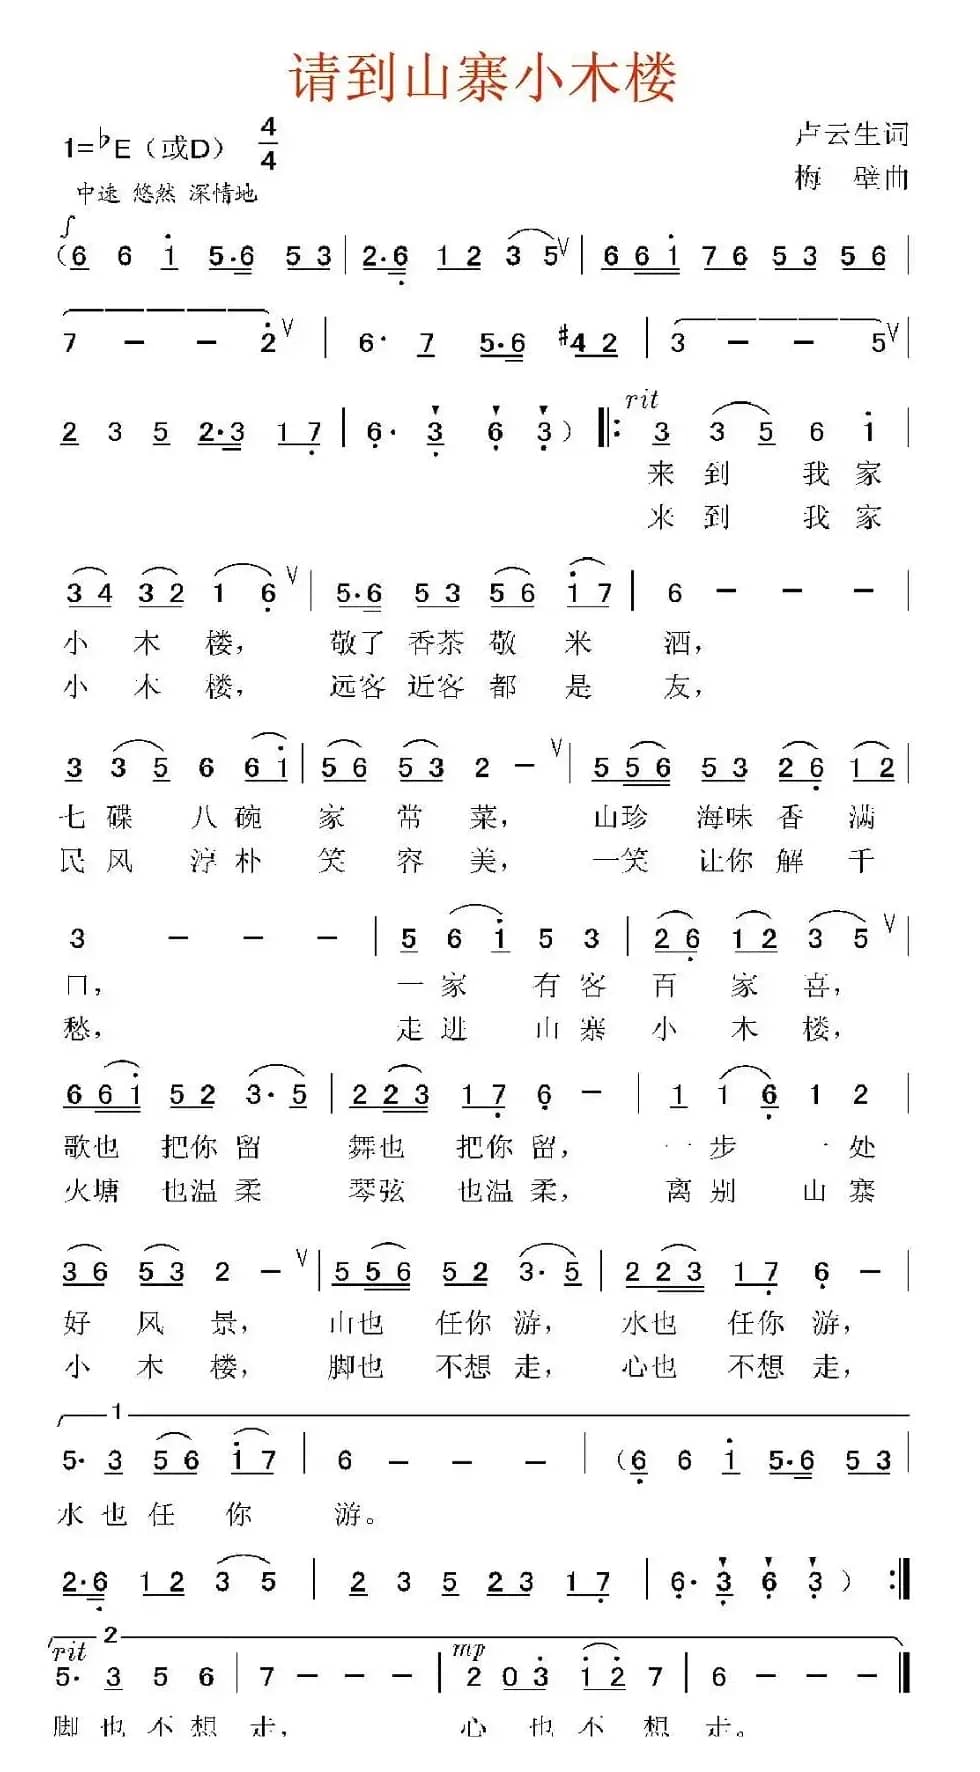 请到山寨小木楼
1=♭E（或D） 4/4
卢云生词
中速 悠然 深情地
梅 壁曲
(6 6 i 5·6 5 3 | 2·6 1 2 3 5 V | 6 6 i 7 6 5 3 5 6 |
7 - - 2 V | 6· 7 5·6 #4 2 | 3 - - 5 V |
2 3 5 2·3 1 7 | 6· 3 6 3 ) ‖: rit 3 3 5 6 i |
来 到 我 家
来 到 我 家
3 4 3 2 1 6 V | 5·6 5 3 5 6 i 7 | 6 - - - |
小 木 楼， 敬了 香茶 敬 米 洒，
小 木 楼， 远客 近客 都 是 友，
3 3 5 6 6 i | 5 6 5 3 2 - V | 5 5 6 5 3 2 6 1 2 |
七 碟 八 碗 家 常 菜， 山珍 海味 香 满
民 风 淳 朴 笑 容 美， 一笑 让你 解 千
3 - - - | 5 6 i 5 3 | 2 6 1 2 3 5 V |
口， 一 家 有 客 百 家 喜，
愁， 走 进 山 寨 小 木 楼，
6 6 i 5 2 3· 5 | 2 2 3 1 7 6 - | 1 1 6 1 2 |
歌也 把你 留 舞也 把你 留， 一 步 一 处
火塘 也温 柔 琴弦 也温 柔， 离 别 山 寨
3 6 5 3 2 - V | 5 5 6 5 2 3· 5 | 2 2 3 1 7 6 - |
好 风 景， 山也 任你 游， 水也 任你 游，
小 木 楼， 脚也 不想 走， 心也 不想 走，
1
5· 3 5 6 i 7 | 6 - - - | (6 6 i 5·6 5 3 |
水 也 任 你 游。
2·6 1 2 3 5 | 2 3 5 2 3 1 7 | 6· 3 6 3 ) :‖
2
rit mp
5· 3 5 6 | 7 - - - | 2 0 3 i 2 7 | 6 - - - ‖
脚 也 不 想 走， 心 也 不 想 走。